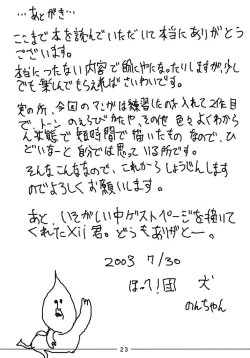 …あとがき…
ここまで本を読んでいただいて本当にありがとう
ございます。
本当につたない内容で
でも楽しんでもらえればさいわいです。
実の所、今回のマンガは練習化のを入れて2作目
で、トーンのえらびかたや、その他色々よくわから
ん状態で短時間で描いたものなので、ひ
どいなーと自分では思っている所です。
そんなこんななので、これからしょうじんします
のでよろしくお願いします。
あと、いそがしい中ゲストページを描いて
くれたXii君。どうもありがとー。
2003 7/30
ほって!団 犬
のんちゃん
23